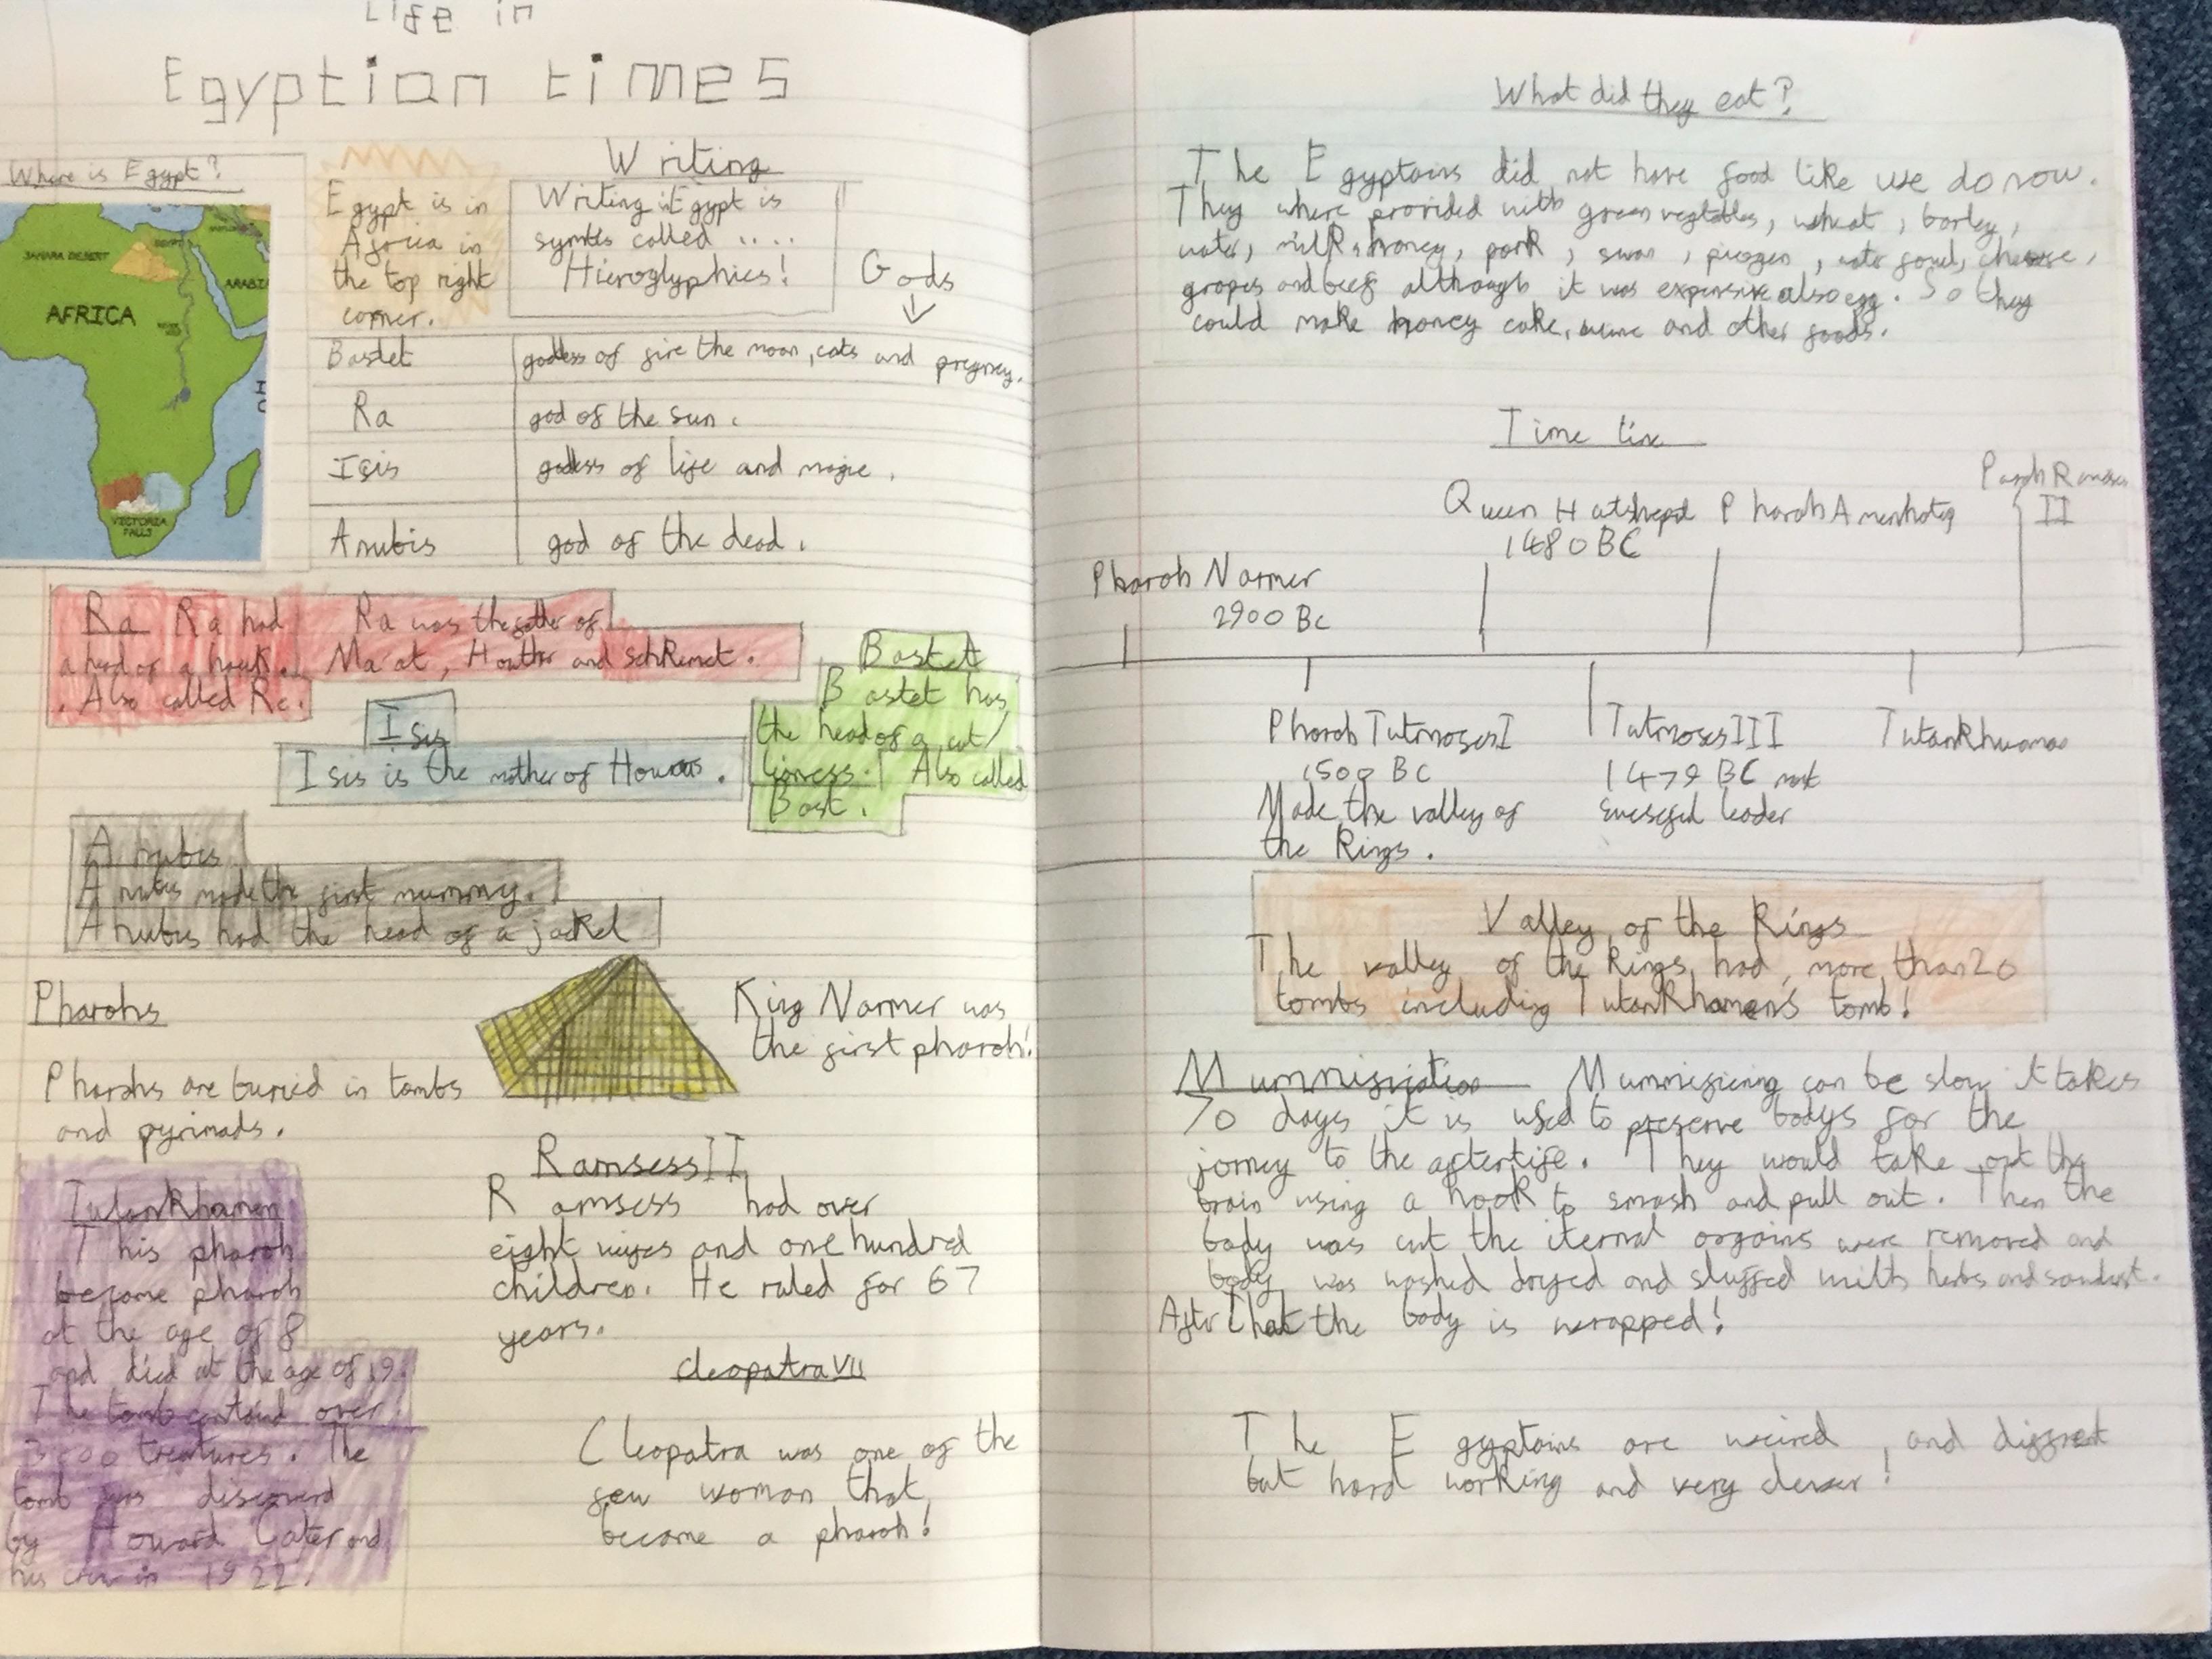 Life in
Egyptian times
Where is Egypt?
SAHARA DESERT
EGYPT
ARABI
AFRICA
VICTORIA
FALLS
Egypt is in
Africa in
the top right
corner.
Writing
Writing in Egypt is
called ....
Hieroglyphics!
Gods
Bastet
godess of fire the moon, cats and
Ra
god of the sun.
Isis
godess of life and magic.
Anubis
god of the dead.
Ra Ra had
a head of a hawk.
. Also called Re.
Ra was the father of
Ma'at, Hauthor and Schkemet.
Bastet
Bastet has
the head of a cat/
lioness. Also called
Bast.
Isis
Isis is the mother of
Anubis
Anubis made the first mummy.
Anubis had the head of a jackel
Pharohs
Pharohs are buried in tombs
and pyrimads.
King Narmer was
the first pharoh!
Tutankhamen
This pharoh
became pharoh
at the age of 8
and died at the age of 19.
The tomb over
3000 treatures. The
tomb was
by Howard Cater and
his crew in 1922.
Ramsess II
Ramsess had over
eight wifes and one hundred
children. He ruled for 67
years.
Cleopatra VII
Cleopatra was one of the
few woman that
become a pharoh!
What did they eat?
The Egyptains did not have food like we do now.
They where provided with green vegtables, wheat, barley,
water, milk, honey, pork, swan, piogen, water fowl, cheese,
grapes and beef although it was expensive also egg. So they
could make honey cake, wine and other foods.
Time line
Pharoh Narmer
2900 Bc
Queen
1480 BC
Pharoh Amenhotep
II
Pharoh Tutmoses I
1500 BC
Made the valley of
the Kings.
Tutmoses III
1479 BC most
leader
Valley of the Kings
The valley of the Kings had more than 20
tombs including Tutankhamen's tomb!
Mummifiying can be slow it takes
70 days it is used to preserve bodys for the
jorney to the afterlife. They would take out the
brain using a hook to smash and pull out. Then the
body was cut the iternal orgains were removed and
body was washed dryed and stuffed with herbs and sawdust.
After that the body is wrapped!
The Egyptains are weired, and diffrent
but hard working and very clever!